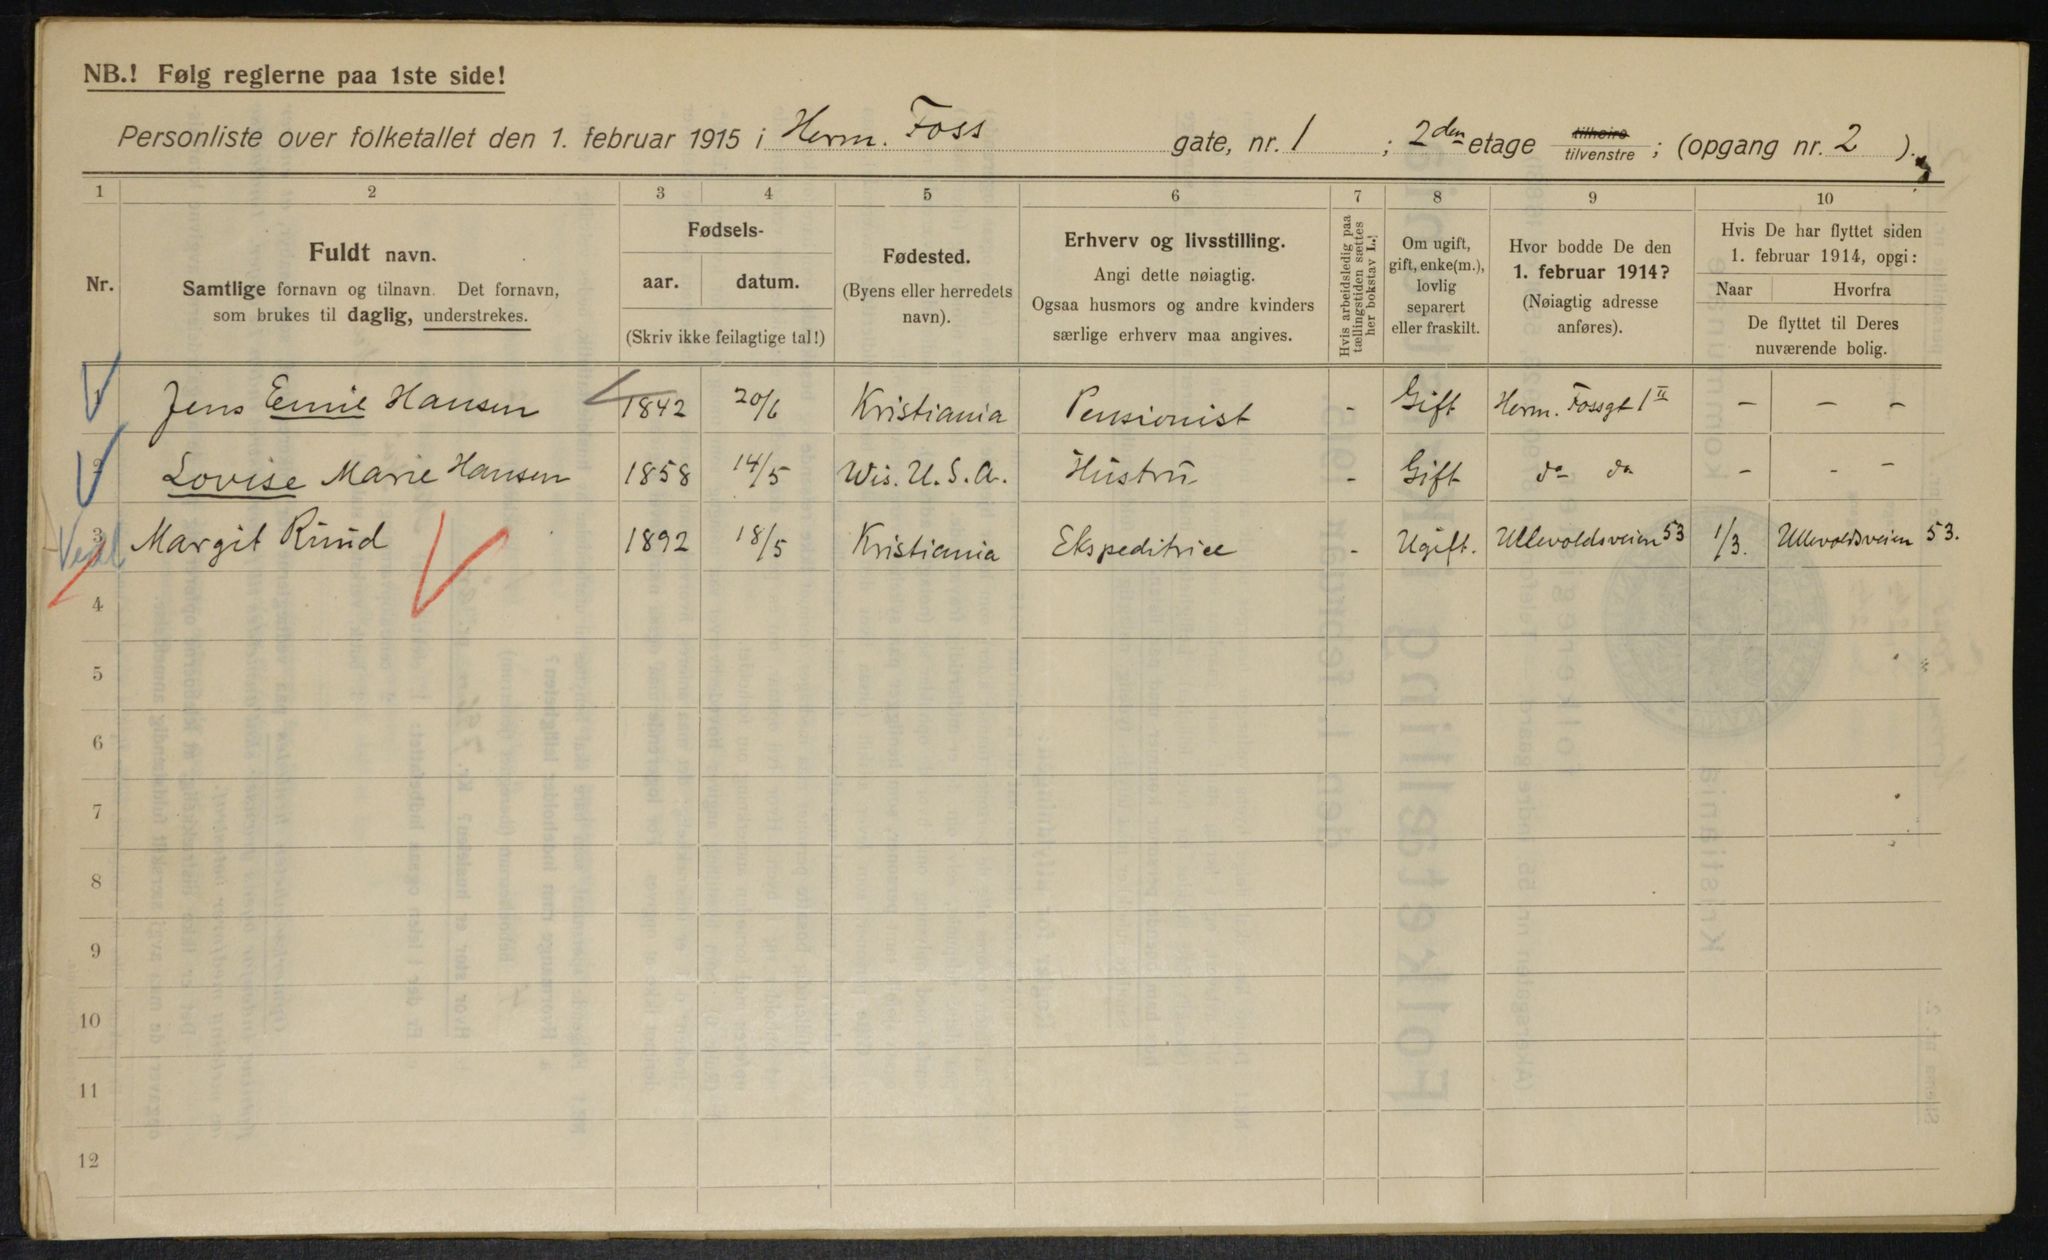 NB.! Følg reglerne paa 1ste side!
Personliste over folketallet den 1. februar 1915 i Herm. Foss gate, nr. 1 ; 2den etage tilhøire tilvenstre ; (opgang nr. 2 ).
1 2 3 4 5 6 7 8 9 10
Nr.
Fuldt navn.
Samtlige fornavn og tilnavn. Det fornavn,
som brukes til daglig, understrekes.
Fødsels-
aar. datum.
(Skriv ikke feilagtige tal!)
Fødested.
(Byens eller herredets
navn).
Erhverv og livsstilling.
Angi dette nøiagtig.
Ogsaa husmors og andre kvinders
særlige erhverv maa angives.
Hvis arbeidsledig paa
tællingstiden sættes
her bokstav L.!
Om ugift,
gift, enke(m.),
lovlig
separert
eller fraskilt.
Hvor bodde De den
1. februar 1914?
(Nøiagtig adresse
anføres).
Hvis De har flyttet siden
1. februar 1914, opgi:
Naar Hvorfra
De flyttet til Deres
nuværende bolig.
1 Jens Emil Hansen 1842 20/6 Kristiania Pensionist - Gift Herm. Fossgt 1 II - - -
2 Lovise Marie Hansen 1858 14/5 Wis. U.S.A. Hustru - Gift do do - - -
3 Margit Ruud 1892 18/5 Kristiania Ekspeditrice - Ugift. Ullevoldsveien 53 1/3. Ullevoldsveien 53.
4
5
6
7
8
9
10
11
12